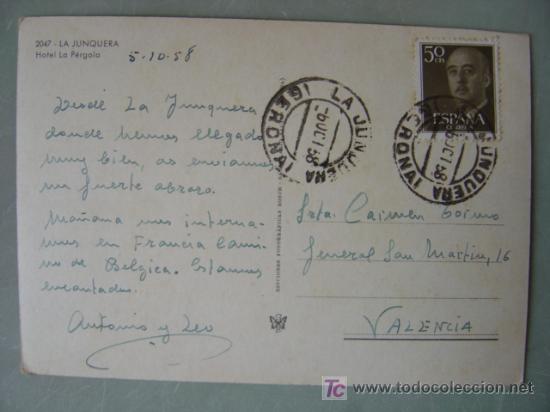 2047 - LA JUNQUERA
Hotel La Pérgola
5-10-58
Desde La Junquera
donde hemos llegado
muy bien, os enviamos
un fuerte abrazo.
Mañana nos interna-
mos en Francia cami-
no de Bélgica. Estamos
encantados.
Antonio y Leo
50 CTS
ESPAÑA
CORREOS
LA JUNQUERA (GERONA)
-6 OCT 58
LA JUNQUERA (GERONA)
-6 OCT 58
Srta. Carmen
General San Martín, 16
VALENCIA
todocoleccion
www.todocoleccion.net